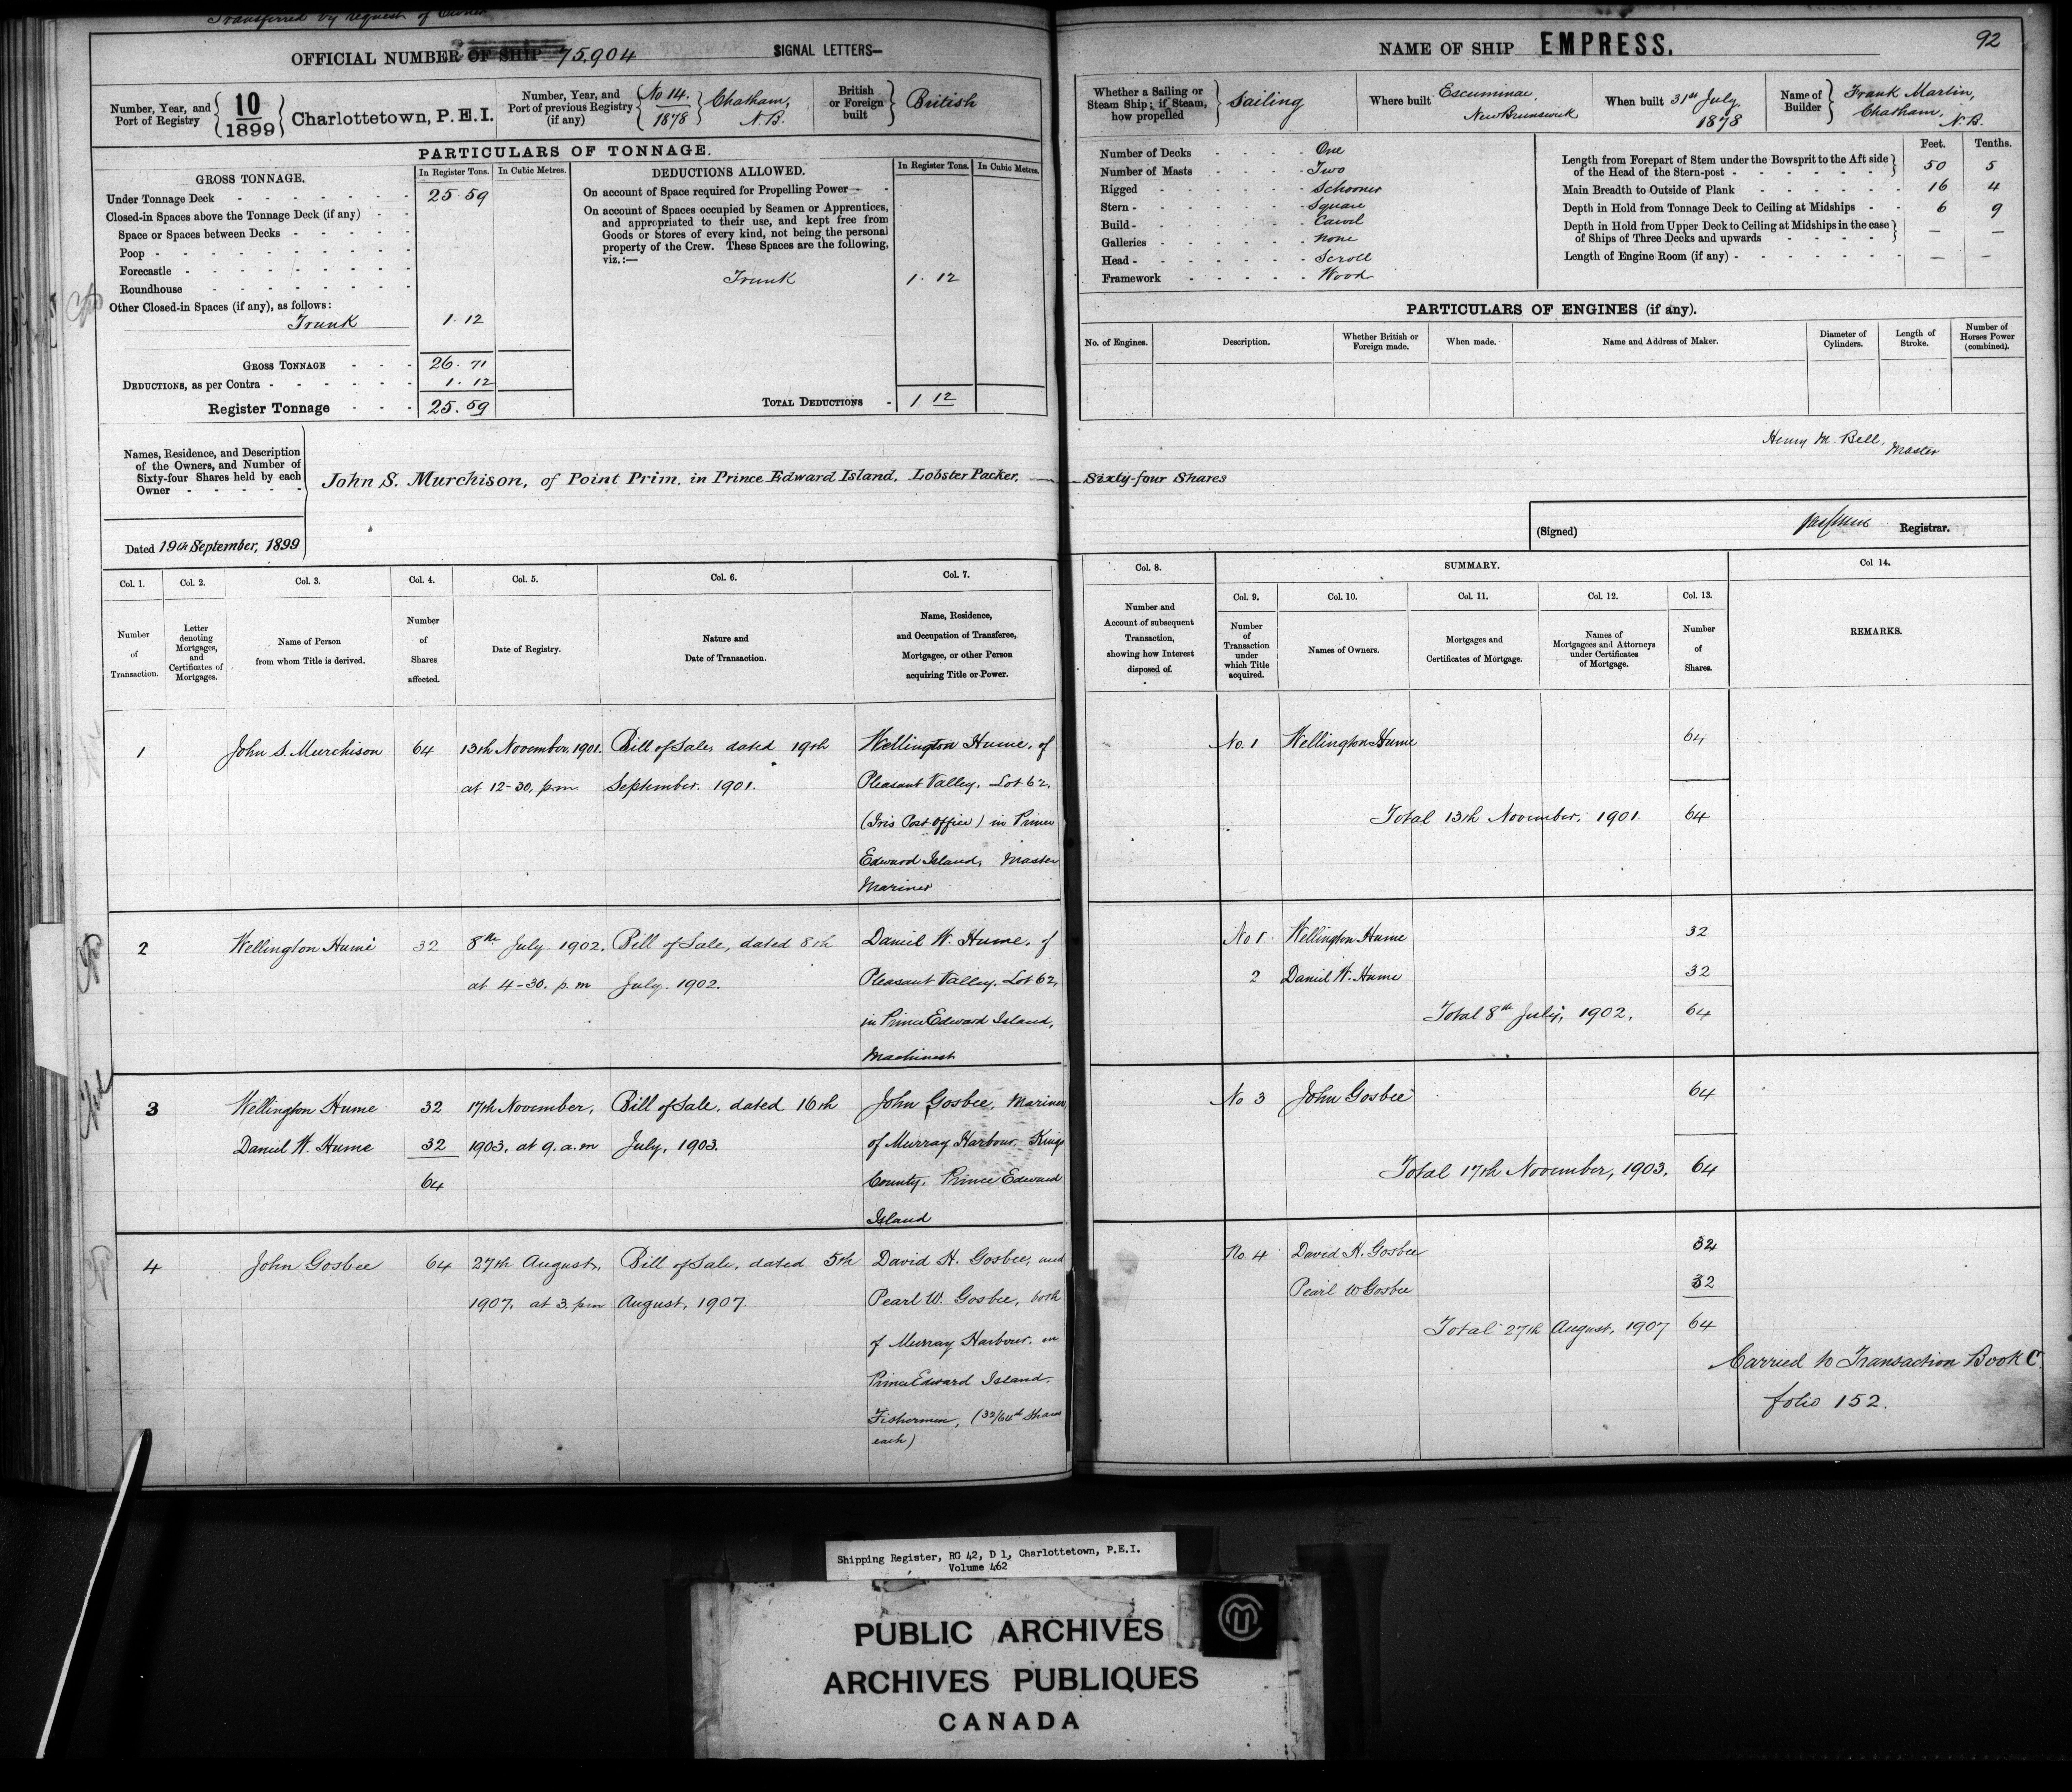 Transferred by request of Owner
OFFICIAL NUMBER OF SHIP 75,904
SIGNAL LETTERS—
Number, Year, and Port of Registry { 10/1899 } Charlottetown, P.E.I.
Number, Year, and Port of previous Registry (if any) { No 14. 1878 } Chatham, N.B.
British or Foreign built } British
PARTICULARS OF TONNAGE.
GROSS TONNAGE.
In Register Tons.
In Cubic Metres.
Under Tonnage Deck 25.59
Closed-in Spaces above the Tonnage Deck (if any)
Space or Spaces between Decks
Poop
Forecastle
Roundhouse
Other Closed-in Spaces (if any), as follows:
Trunk 1.12
GROSS TONNAGE 26.71
DEDUCTIONS, as per Contra 1.12
Register Tonnage 25.59
DEDUCTIONS ALLOWED.
In Register Tons.
In Cubic Metres.
On account of Space required for Propelling Power
On account of Spaces occupied by Seamen or Apprentices,
and appropriated to their use, and kept free from
Goods or Stores of every kind, not being the personal
property of the Crew. These Spaces are the following,
viz.:—
Trunk 1.12
TOTAL DEDUCTIONS 1 12
Names, Residence, and Description
of the Owners, and Number of
Sixty-four Shares held by each
Owner
John S. Murchison, of Point Prim, in Prince Edward Island, Lobster Packer,
Dated 19th September, 1899
Col. 1.
Col. 2.
Col. 3.
Col. 4.
Col. 5.
Col. 6.
Col. 7.
Number of Transaction.
Letter denoting Mortgages, and Certificates of Mortgages.
Name of Person from whom Title is derived.
Number of Shares affected.
Date of Registry.
Nature and Date of Transaction.
Name, Residence, and Occupation of Transferee, Mortgagee, or other Person acquiring Title or Power.
1 John S. Murchison 64 13th November, 1901. Bill of Sale, dated 19th Wellington Hume, of
at 12-30, p.m. September. 1901. Pleasant Valley, Lot 62,
(Iris Post Office) in Prince
Edward Island, Master
Mariner
2 Wellington Hume 32 8th July 1902, Bill of Sale, dated 8th Daniel W. Hume, of
at 4-30. p.m July. 1902. Pleasant Valley, Lot 62,
in Prince Edward Island,
Machinest
3 Wellington Hume 32 17th November, Bill of Sale, dated 16th John Gosbee, Mariner,
Daniel W. Hume 32 1903, at 9. a.m July, 1903. of Murray Harbour, Kings
64 County, Prince Edward
Island
4 John Gosbee 64 27th August, Bill of Sale, dated 5th David H. Gosbee, and
1907, at 3. pm August, 1907. Pearl W. Gosbee, both
of Murray Harbour, in
Prince Edward Island.
Fishermen, (32/64th Shares
each)
NAME OF SHIP EMPRESS.
92
Whether a Sailing or Steam Ship; if Steam, how propelled } Sailing
Where built Escuminac, New Brunswick
When built 31st July, 1878
Name of Builder } Frank Martin, Chatham, N.B.
Number of Decks One
Number of Masts Two
Rigged Schooner
Stern Square
Build Carvel
Galleries None
Head Scroll
Framework Wood
Feet. Tenths.
Length from Forepart of Stem under the Bowsprit to the Aft side
of the Head of the Stern-post 50 5
Main Breadth to Outside of Plank 16 4
Depth in Hold from Tonnage Deck to Ceiling at Midships 6 9
Depth in Hold from Upper Deck to Ceiling at Midships in the case
of Ships of Three Decks and upwards — —
Length of Engine Room (if any) — —
PARTICULARS OF ENGINES (if any).
No. of Engines.
Description.
Whether British or Foreign made.
When made.
Name and Address of Maker.
Diameter of Cylinders.
Length of Stroke.
Number of Horses Power (combined).
Henry M. Bell,
Master
Sixty-four Shares
(Signed) Registrar.
Col. 8.
SUMMARY.
Col 14.
Col. 9.
Col. 10.
Col. 11.
Col. 12.
Col. 13.
Number and Account of subsequent Transaction, showing how Interest disposed of.
Number of Transaction under which Title acquired.
Names of Owners.
Mortgages and Certificates of Mortgage.
Names of Mortgagees and Attorneys under Certificates of Mortgage.
Number of Shares.
REMARKS.
No. 1 Wellington Hume 64
Total 13th November, 1901. 64
No 1. Wellington Hume 32
2 Daniel W. Hume 32
Total 8th July, 1902, 64
No 3 John Gosbee 64
Total 17th November, 1903, 64
No. 4 David H. Gosbee 32
Pearl W Gosbee 32
Total 27th August, 1907 64
Carried to Transaction Book C.
folio 152.
Shipping Register, RG 42, D 1, Charlottetown, P.E.I.
Volume 462
PUBLIC ARCHIVES
ARCHIVES PUBLIQUES
CANADA